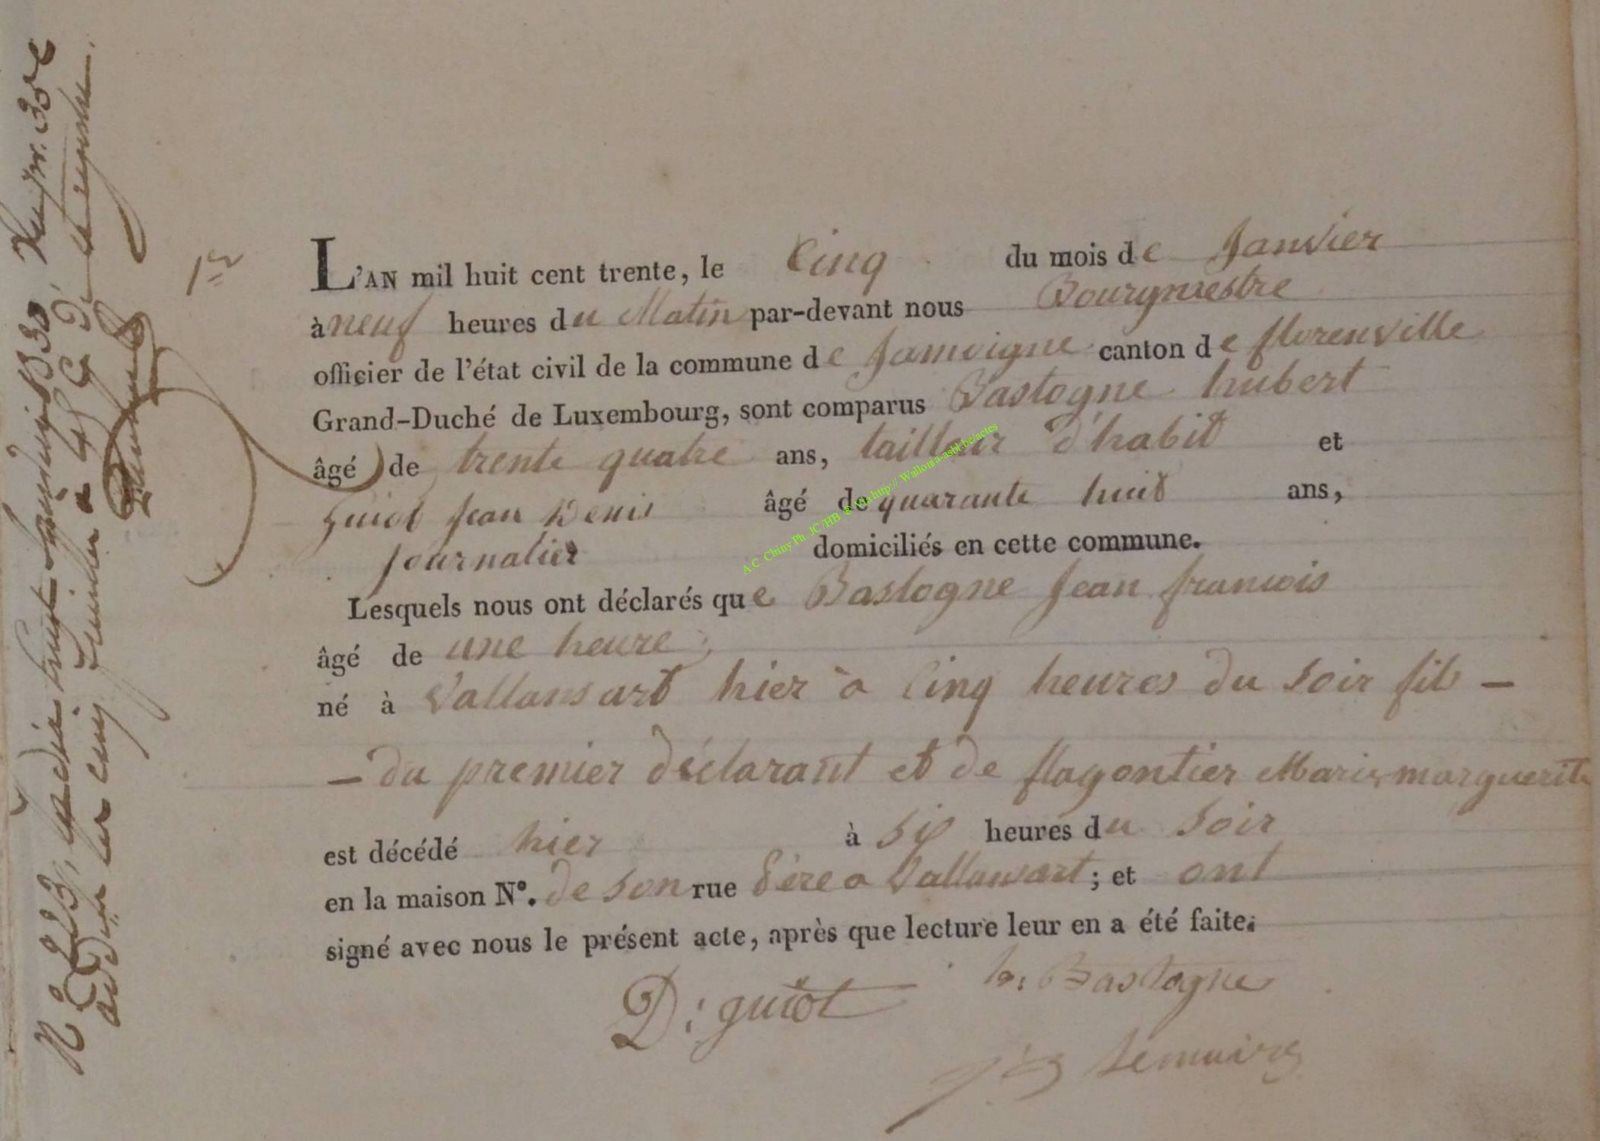 1er
L'AN mil huit cent trente, le Cinq du mois de Janvier
à neuf heures du Matin par-devant nous Bourgmestre
officier de l'état civil de la commune de Jamoigne canton de florenville
Grand-Duché de Luxembourg, sont comparus Bastogne hubert
âgé de trente quatre ans, tailleur d'habit et
Guiot Jean Denis âgé de quarante huit ans,
journalier domiciliés en cette commune.
Lesquels nous ont déclarés que Bastogne Jean francois
âgé de une heure
né à Vallansart hier à Cinq heures du Soir fils —
— du premier déclarant et de flagontier Marie marguerite
est décédé hier à Six heures du Soir
en la maison N°. de Son rue Père a Vallansart; et ont
signé avec nous le présent acte, après que lecture leur en a été faite.
h: Bastogne
D: guiot
Lemaire
A.C. Chiny Ph. JC HB http://Wallonia-asbl.be/actes